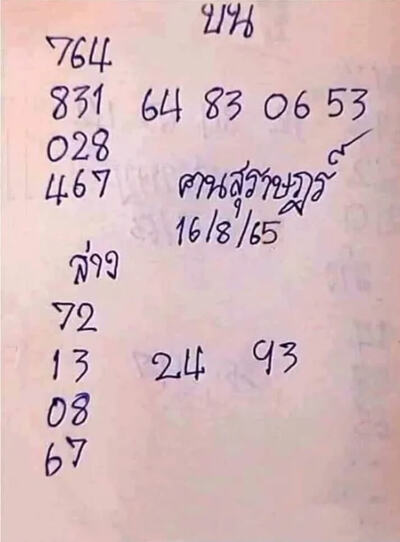 บน
764
831 64 83 06 53
028
467 คนสุราษฎร์
16/8/65
ล่าง
72
13 24 93
08
67